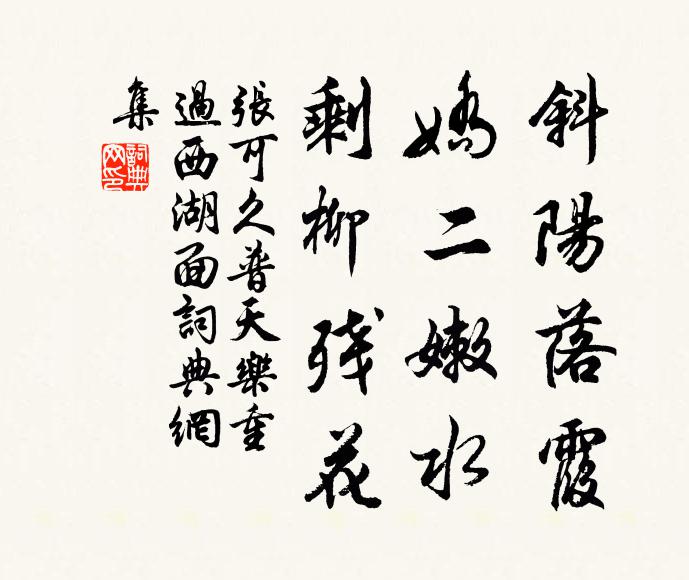 斜陽落霞
嬌二嫩水
剩柳残花
張可久普天樂重
過西湖面詞典網
集
詞典
网印